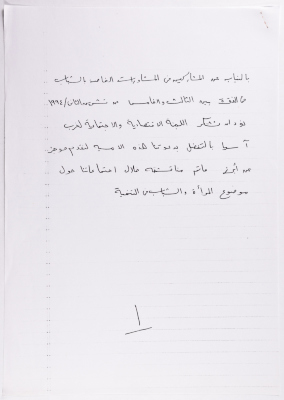 بالنيابة عن المشاركين في المشاورات الخاصة بالشباب
في الفترة بين الثالث والخامس من تشرين الثاني/١٩٩٤
نود ان نشكر اللجنة الاقتصادية والاجتماعية لغرب
آسيا بالتفضل بدعوتنا لهذه الامسية لنقدم موجز
عن أبرز ماتم مناقشته خلال اجتماعاتنا حول
موضوع المرأة والشباب في التنمية
١